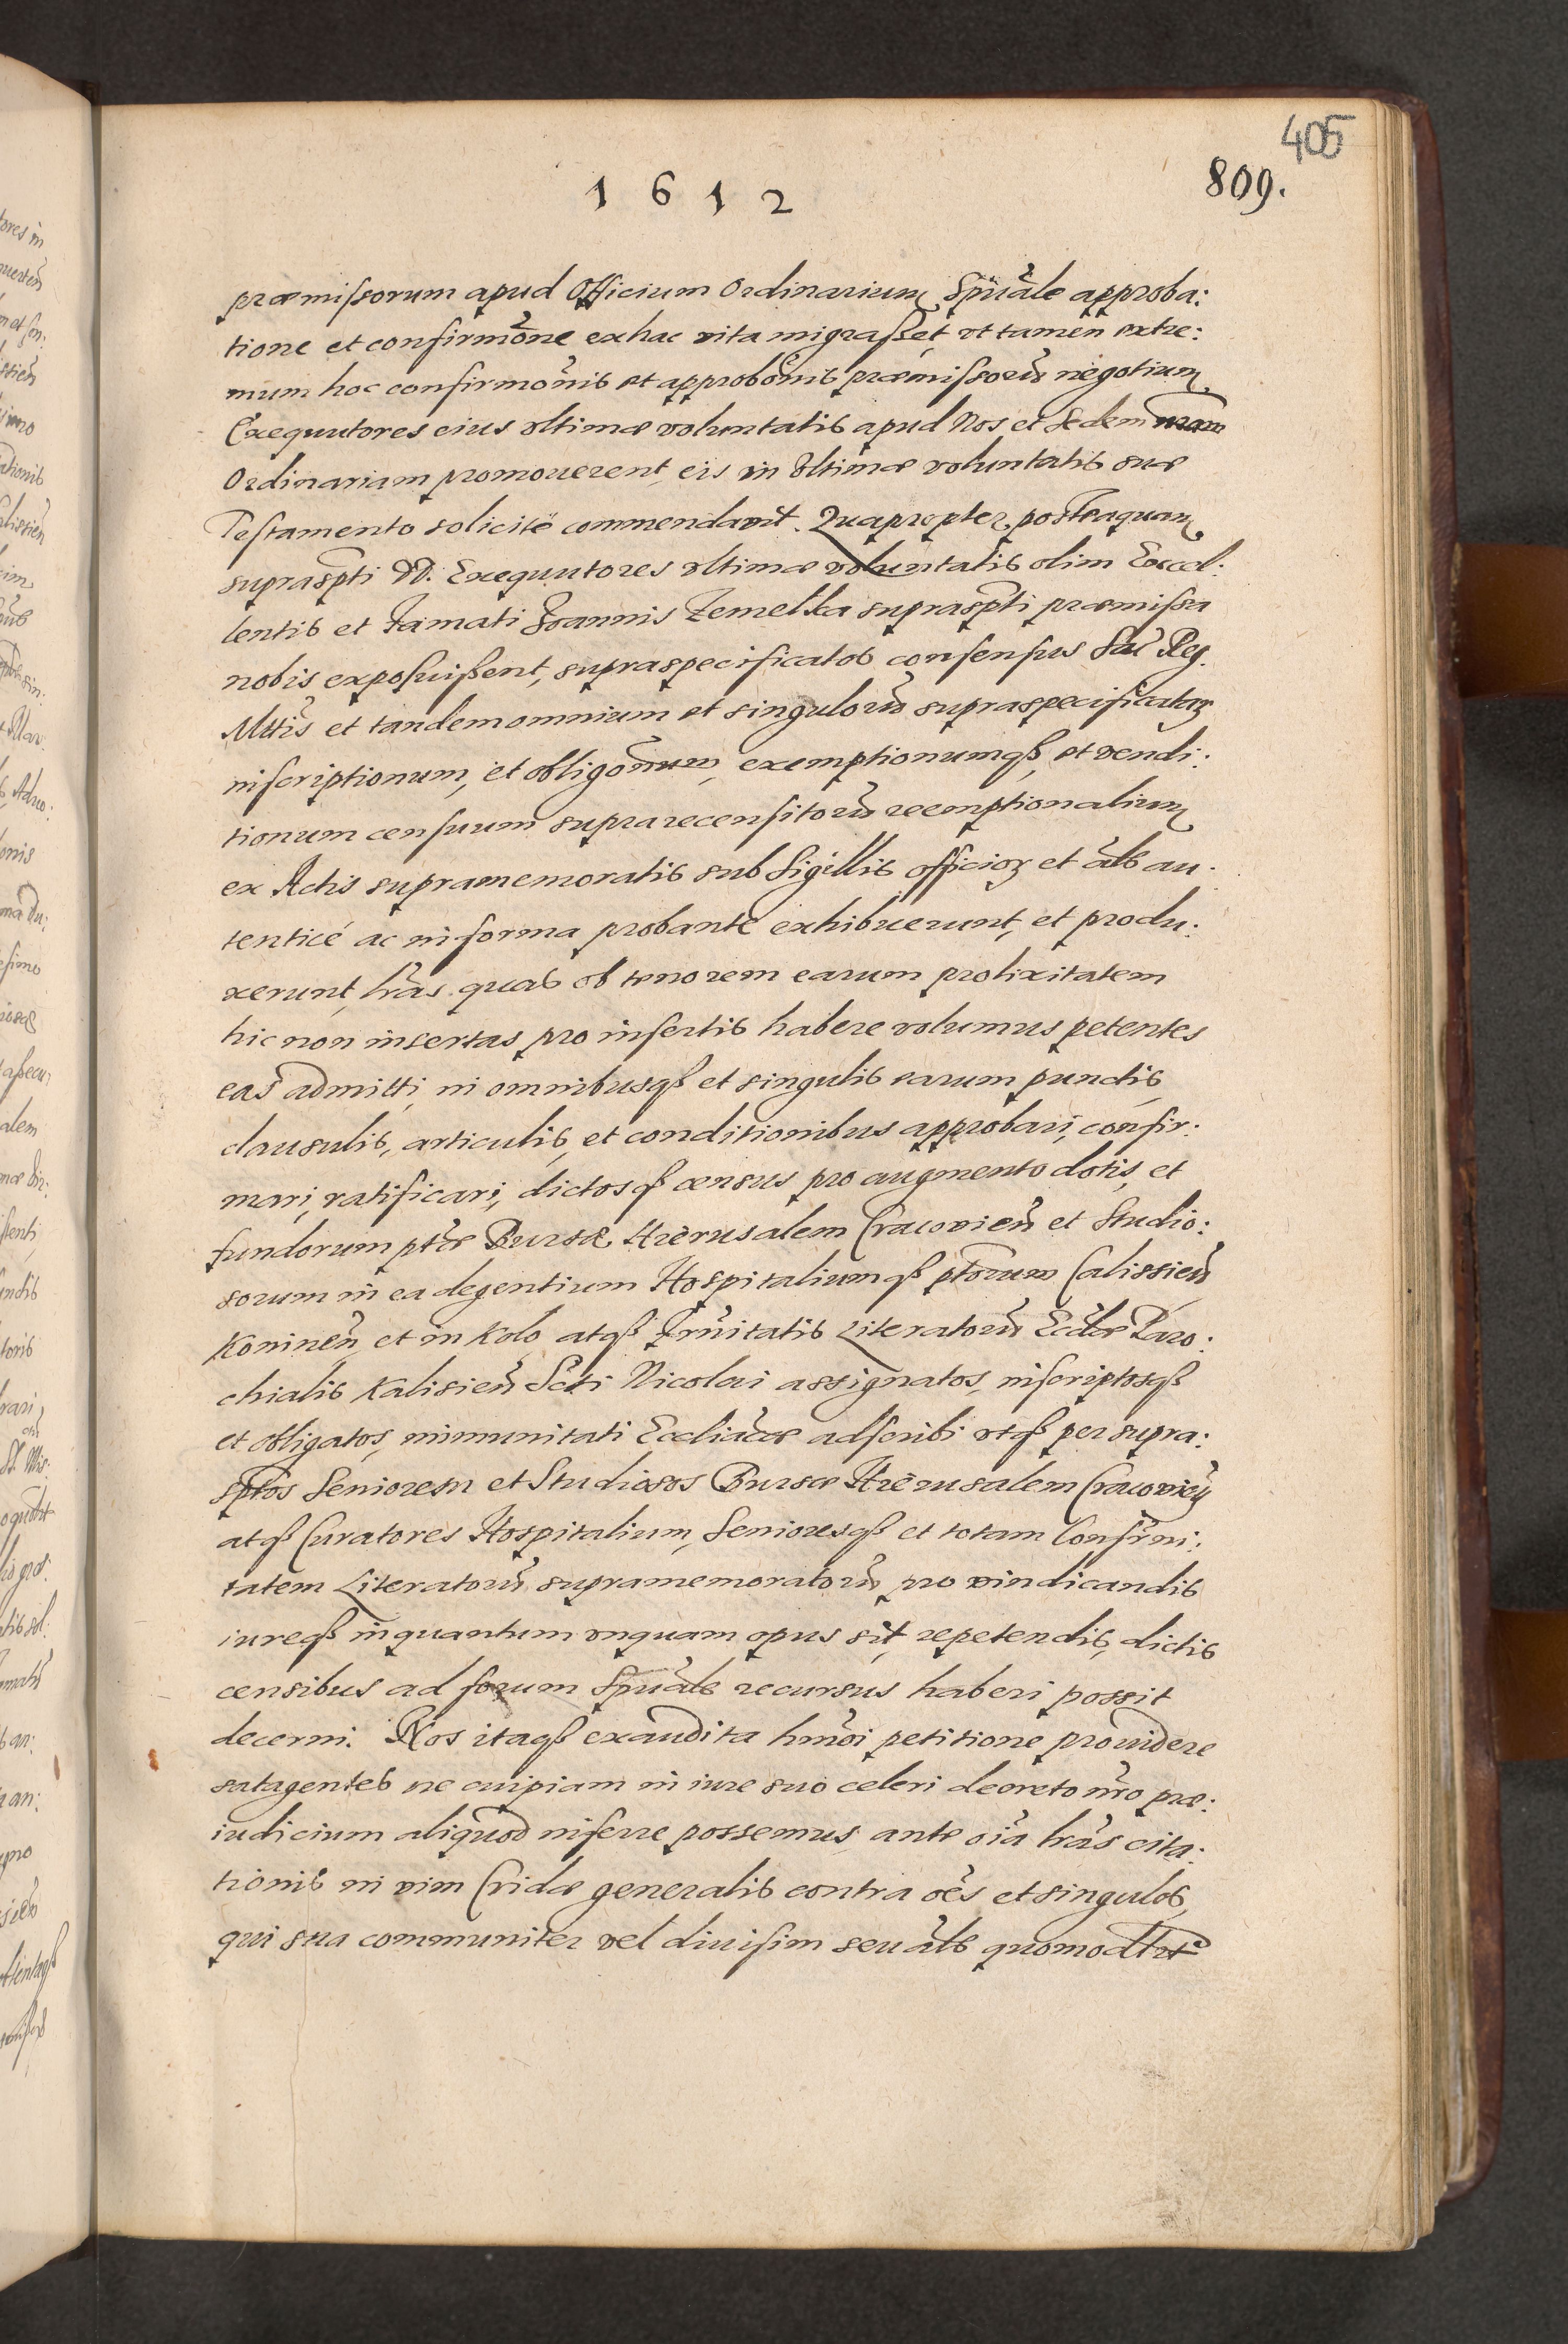 405
1612
809.
præmissorum apud Officium Ordinarium Spũale approba:
tione et confirmõne ex hac vita migrasset, vt tamen extre:
mum hoc confirmõnis et approbõnis præmissorũ negotium
Exequutores eius vltimæ voluntatis apud Nos et Sedem nr̃am
Ordinariam promouerent, eis in vltimæ voluntatis suæ
Testamento solicitè commendavit. Quapropter, posteaquam
suprasp̃ti DD. Exequutores vltimæ voluntatis olim Excel:
lentis et Famati Joannis Zemelka suprasp̃ti præmissa
nobis exposuissent, supraspecificatos consensus Sac̃ Reg.
Mttis̃ et tandem omnium et singulorũ supraspecificatoꝝ
inscriptionum, et obligõnum, exemptionumqꝫ, et vendi:
tionum censuum suprarecensitorũ reemptionalium
ex Actis supramemoratis sub Sigillis officioꝝ et als̃ au:
tenticé ac in forma probante exhibuerunt, et produ:
xerunt, lrãs quas ob tenorem earum prolixitatem
hic non insertas pro insertis habere volumus petentes
eas admitti, in omnibusqꝫ et singulis earum punctis,
clausulis, articulis, et conditionibus approbari, confir:
mari, ratificari, dictosqꝫ census pro augmento dotis, et
fundorum ptæ̃ Bursæ Hierusalem Cracovień et Studio:
sorum in ea degentium Hospitaliumqꝫ ptõrum Calissień
Konineń, et in Kolo, atqꝫ Frũitatis Literatorũ Eccl̃æ Paro:
chialis Kalisień Scti Nicolai assignatos, inscriptosqꝫ
et obligatos, immunitati Ecclia͠cæ adscribi vtqꝫ per supra:
sp̃tos Seniorem et Studiosos Bursæ Hierusalem Cracovień
atqꝫ Curatores Hospitalium, Senioresqꝫ et totam Confr̃ni:
tatem Literatorũ supramemoratorũ, pro vindicandis
iureqꝫ inquantum vnquam opus sit, repetendis, dictis
censibus ad forum Spũale recursus haberi possit
decerni. Nos itaqꝫ exaudita hmõi petitione providere
satagentes ne cuipiam in iure suo celeri decreto nr̃o præ:
iudicium aliquod inferre possemus, ante oĩa lrãs cita:
tionis in vim Cridæ generalis contra oẽs et singulos,
qui sua communiter vel diuisim seu als̃ quomodlt